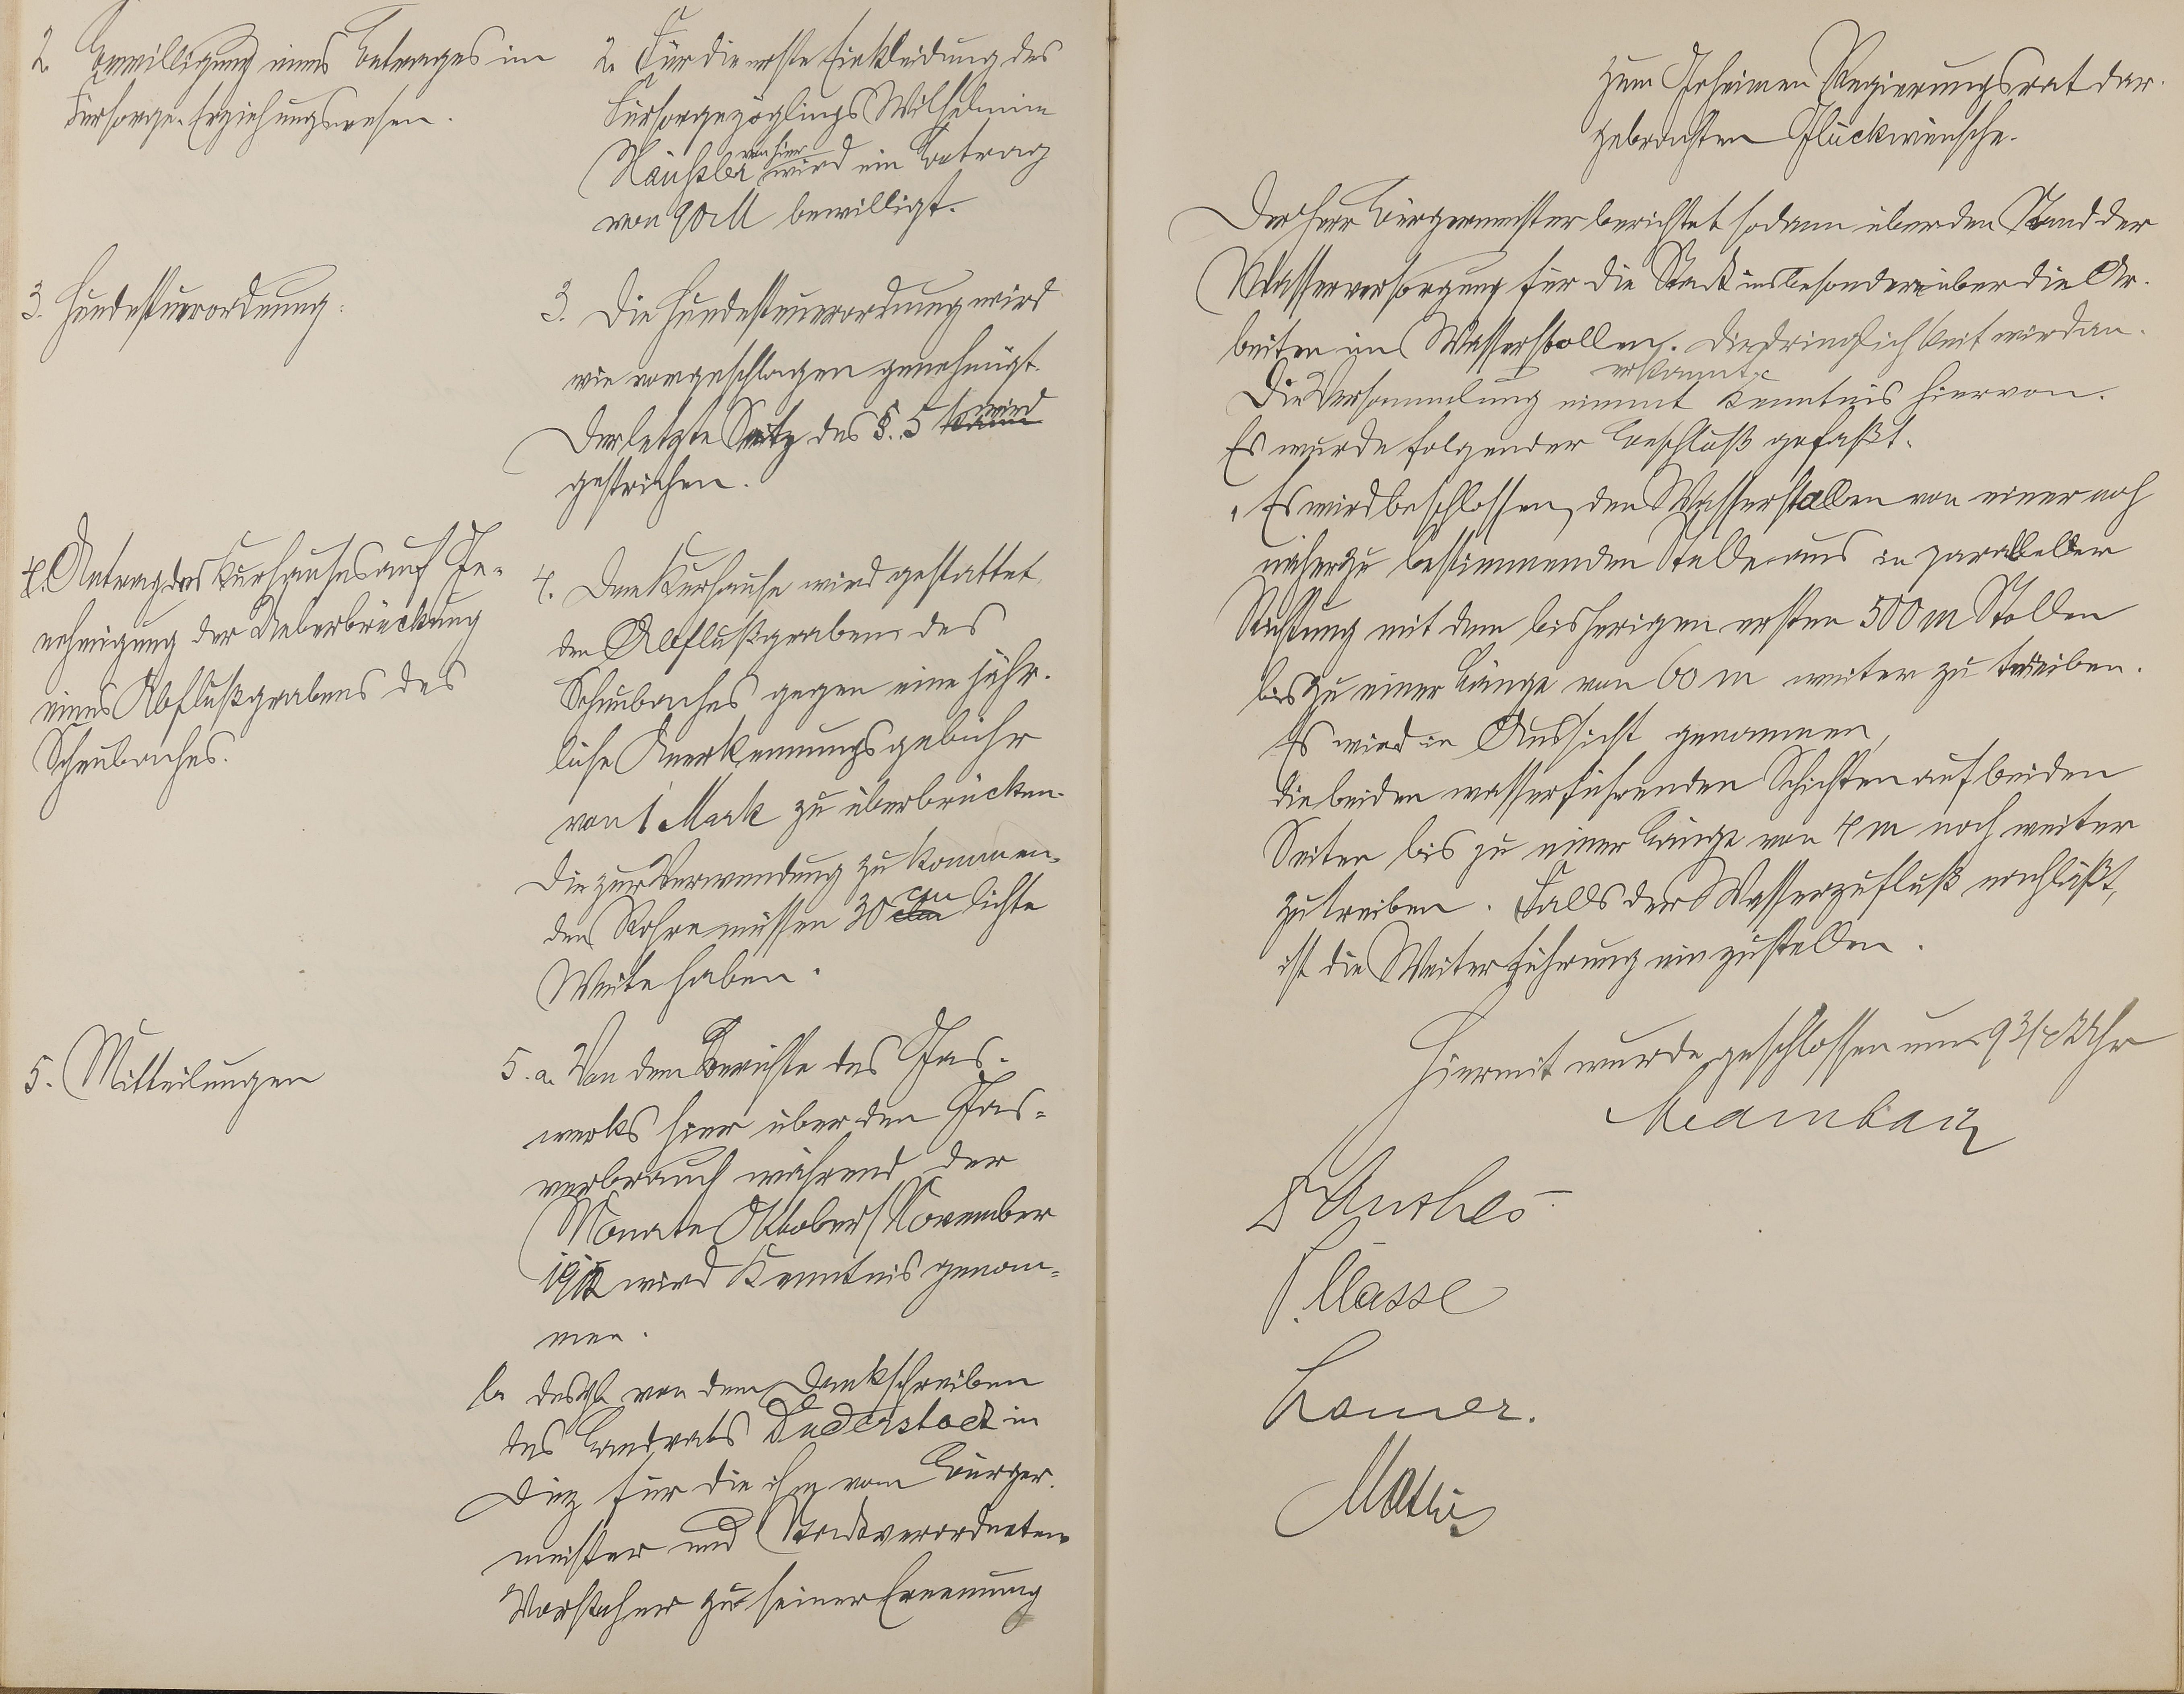 2. Bewilligung eines Betrages im
Fürsorge-Erziehungswesen.
2. Für die erste Einkleidung des
Fürsorgezöglings Wilhelmine
Häußler von hier wird ein Betrag
von 90 M bewilligt.
3. Hundesteuerordnung.
3. Die Hundesteuerordnung wird
wie vorgeschlagen genehmigt.
Der letzte Satz des §. 5 wird
gestrichen.
4. Antrag des Kurhauses auf Ge-
nehmigung der Ueberbrückung
eines Abflußgrabens des
Scheubaches.
4. Dem Kurhause wird gestattet,
den Abflußgraben des
Scheubaches gegen eine jähr-
liche Anerkennungsgebühr
von 1 Mark zu überbrücken.
Die zur Verwendung zu kommen-
den Rohre müssen 30 cm lichte
Weite haben.
5. Mitteilungen
5. a. Von dem Berichte des Gas-
werks hier über den Gas-
verbrauch während der
Monate Oktober/November
1912 wird Kenntnis genom-
men.
b. desgl. von dem Dankschreiben
des Landrats Duderstadt in
Diez für die ihm vom Bürger-
meister und Stadtverordneten-
Vorsteher zu seiner Ernennung
zum Geheimen Regierungsrat dar-
gebrachten Glückwünsche.
Der Herr Bürgermeister berichtet sodann über den Stand der
Wasserversorgung für die Stadt insbesondere über die Ar-
beiten im Wasserstollen. Die Dringlichkeit wird an-
erkannt.
Die Versammlung nimmt Kenntnis hiervon.
Es wurde folgender Beschluß gefaßt.
"Es wird beschlossen, den Wasserstollen von einer noch
näher zu bestimmenden Stelle aus in paralleler
Richtung mit dem bisherigen ersten 500 m Stollen
bis zu einer Länge von 60 m weiter zu treiben.
Es wird in Aussicht genommen,
die beiden wasserführenden Schichten auf beiden
Seiten bis zu einer Länge von 4 m noch weiter
zu treiben. Falls der Wasserzufluß nachläßt,
ist die Weiterführung einzustellen.
Hiermit wurde geschlossen um 9 3/4 Uhr
Anthes
Classe